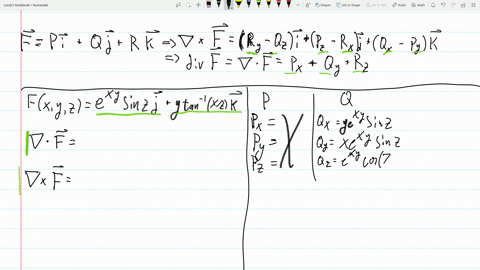 Lucas's Notebook - Homework
F⃗ = P i⃗ + Q j⃗ + R K⃗ ⇒ ∇ × F⃗ = (Ry - Qz) i⃗ + (Pz - Rx) j⃗ + (Qx - Py) K⃗
⇒ div F⃗ = ∇ · F⃗ = Px + Qy + Rz
F(x,y,z) = e^xy sin z j⃗ + y tan⁻¹(xz) K⃗
∇ · F⃗ =
∇ × F⃗ =
P
Px =
Py =
Pz =
Q
Qx = ye^xy sin z
Qy = xe^xy sin z
Qz = e^xy cos(